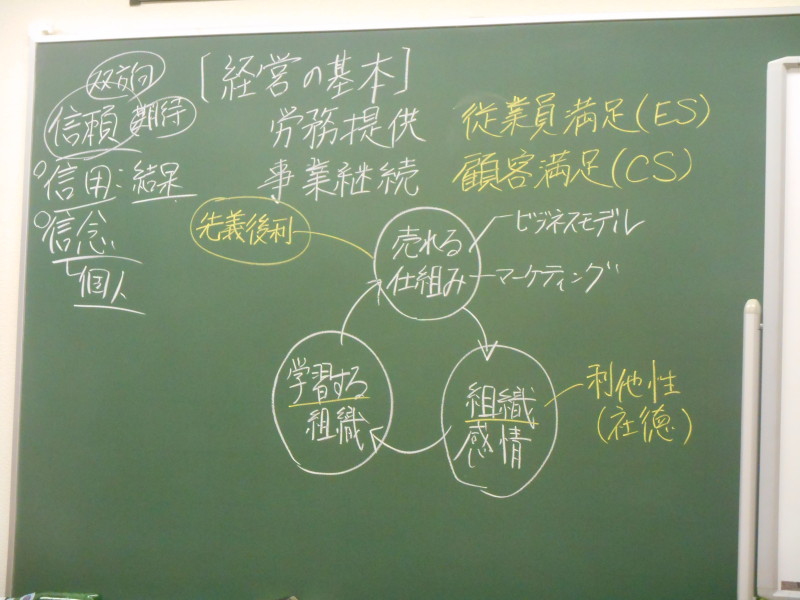 双方向
信頼 期待
信用:結果
信念
個人
[経営の基本]
労務提供 従業員満足(ES)
事業継続 顧客満足(CS)
先義後利
売れる
仕組み
ビジネスモデル
マーケティング
学習する
組織
組織
感情
利他性
(在徳)